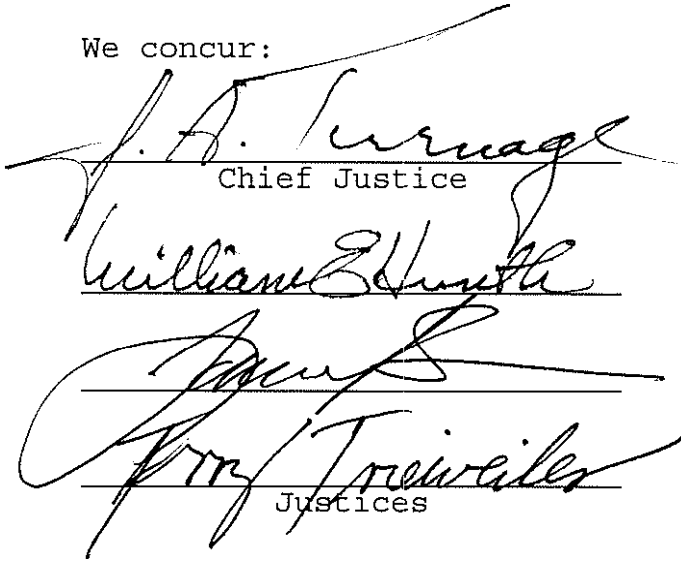 We concur:
J. A. Turnage
Chief Justice
William E. Hunt
Terry Trieweiler
Justices